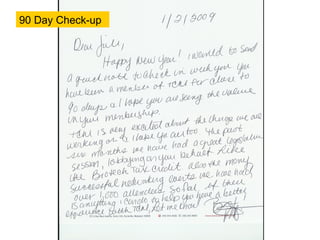 90 Day Check-up
1/2/2009
Dear Jill,
Happy New Year! I wanted to send
a quick note to check in with you. You
have been a member of TCAR for close to
90 days & I hope you are seeing the value
in your membership.
TCAR is very excited about the things we are
working on & I hope you are too. The past
six months we have had a great legislative
session, lobbying on your behalf like
the Broker Tax credit. Also the many
successful networking events we have had,
over 1,000 attendees so far. If there
is anything I can do to help you have a better
experience with let me know!